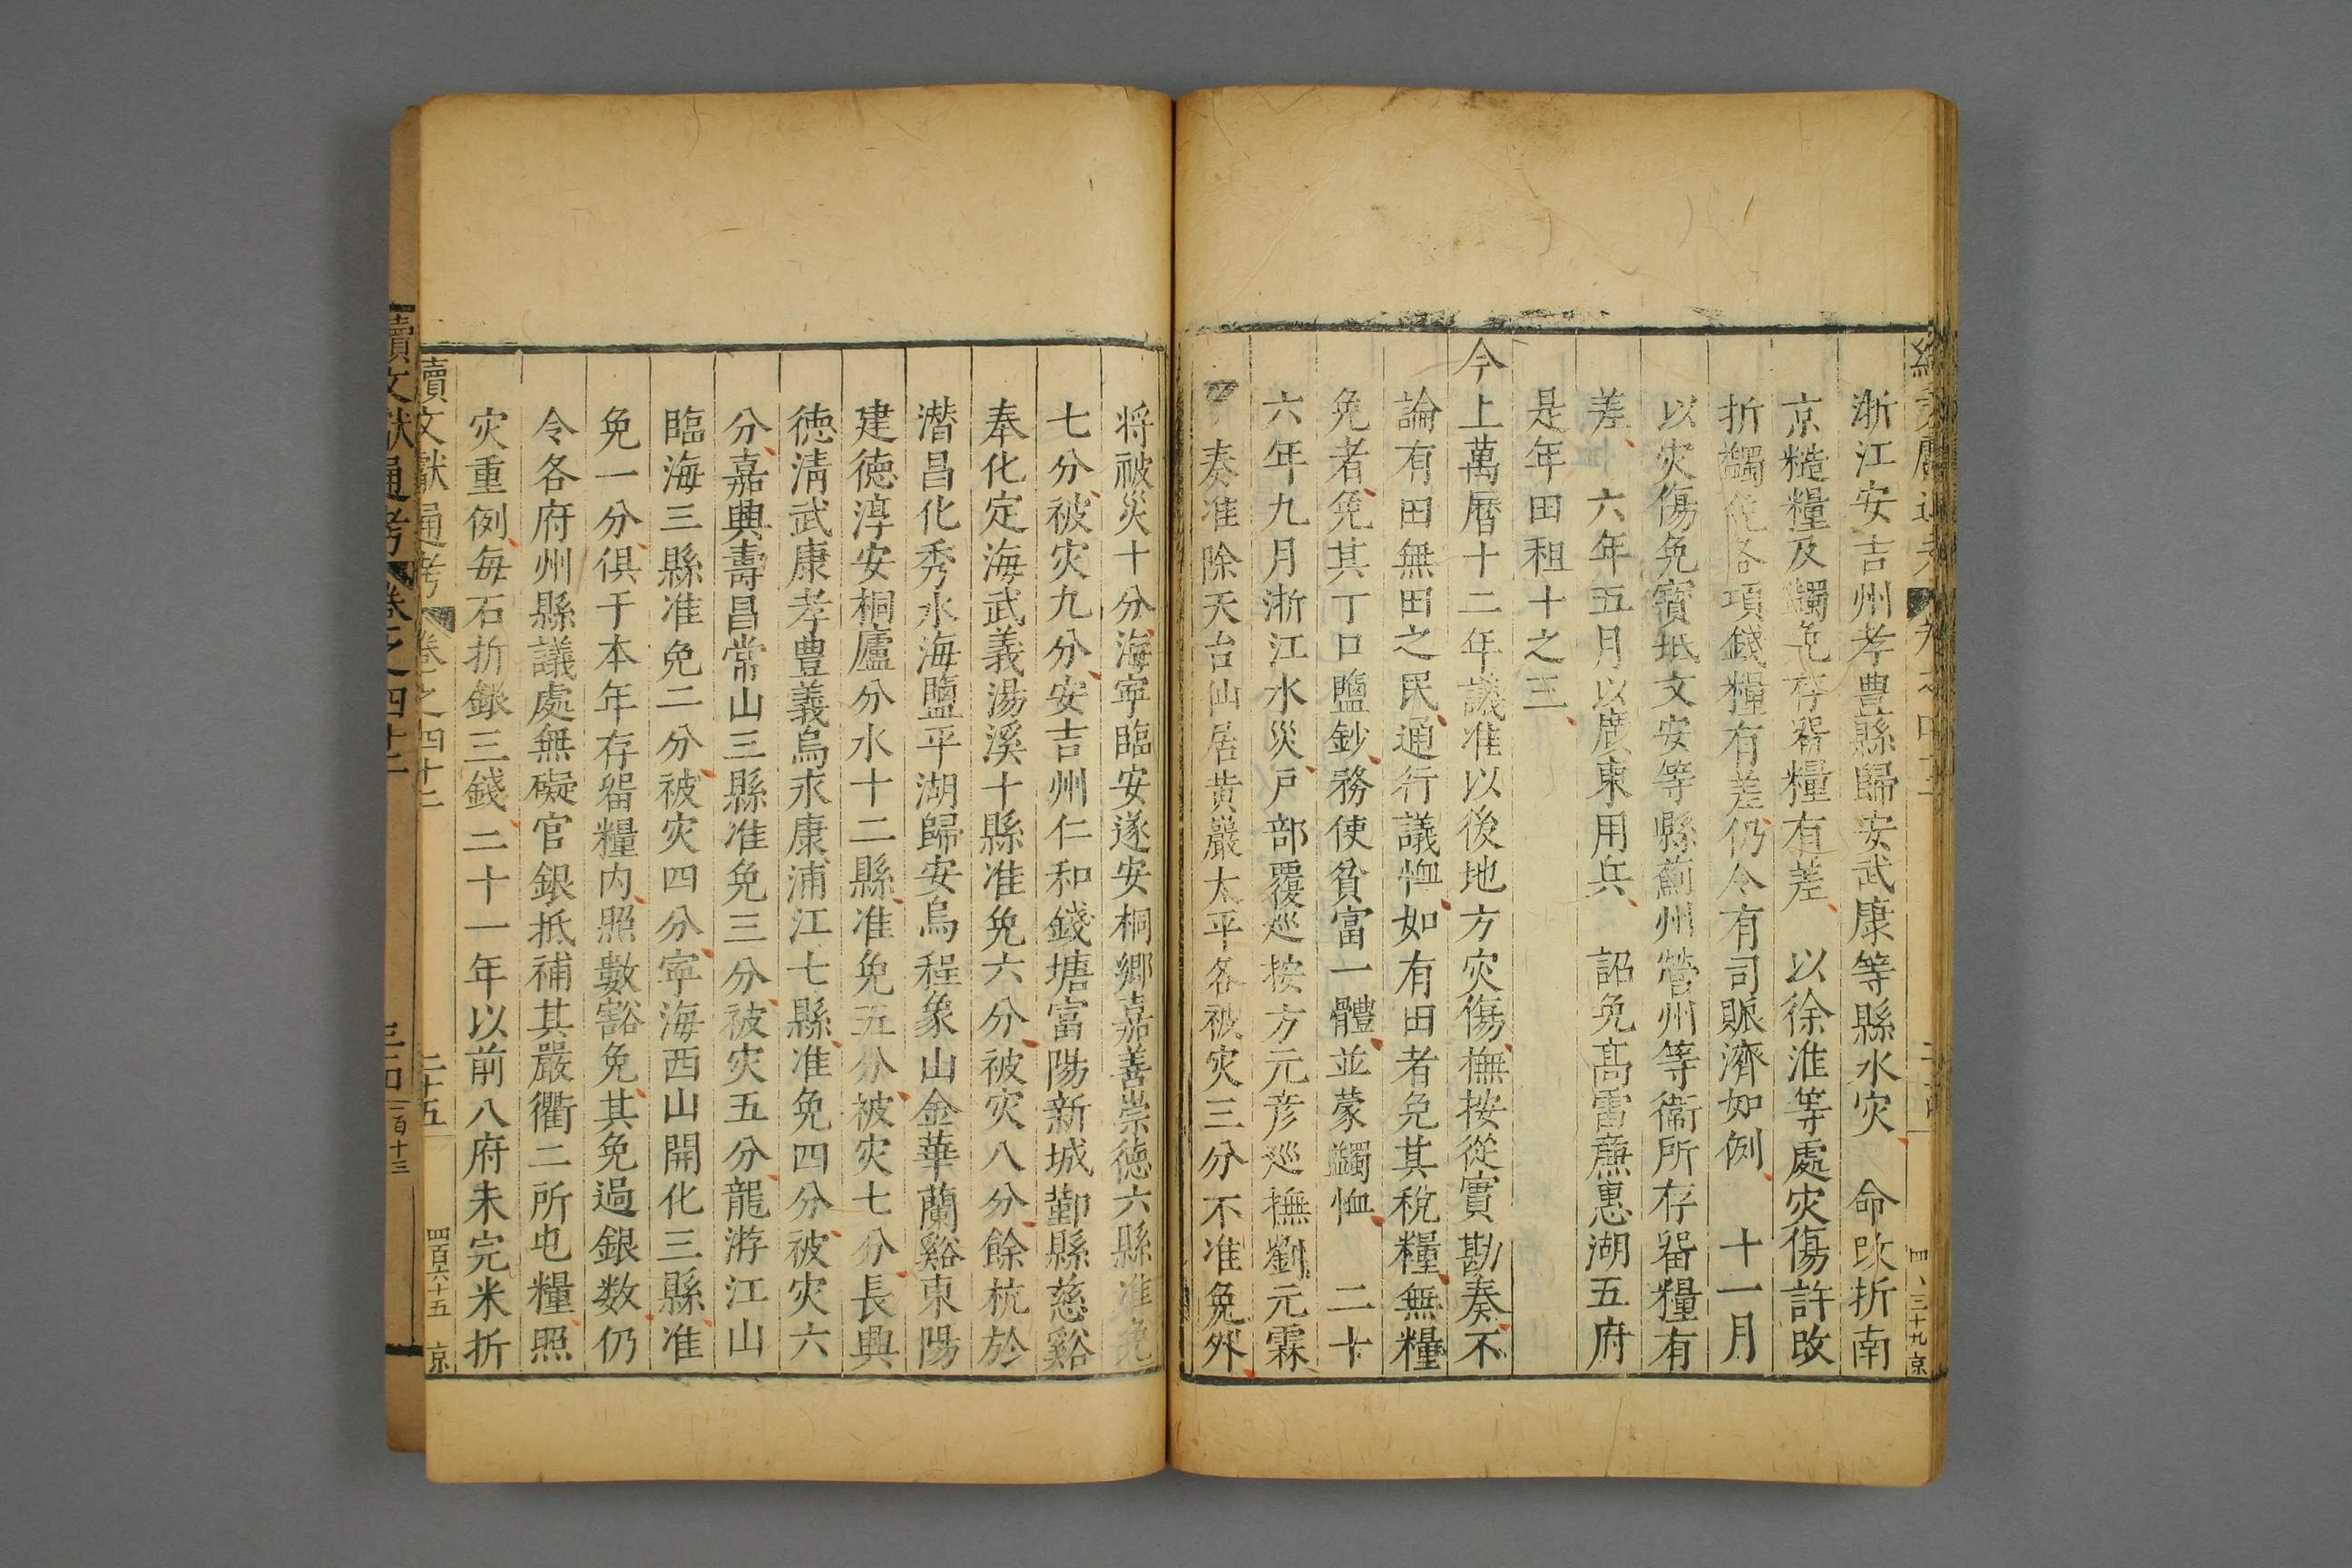 浙江安吉州孝豊縣歸安武康等縣水灾　命改折南
京糙糧及蠲免存畱糧有差　以徐淮等處灾傷許改
折蠲免各項錢糧有差仍令有司賑濟如例　十一月
以灾傷免寳抵文安等縣薊州營州等衞所存畱糧有
差　六年五月以廣東用兵　詔免髙雷亷惠湖五府
是年田租十之三
今上萬曆十二年議准以後地方灾傷撫按從實勘奏不
論有田無田之民通行議恤如有田者免其稅糧無糧
免者免其丁口鹽鈔務使貧富一體並蒙蠲恤　二十
六年九月浙江水災戶部覆巡按方元彦巡撫劉元霖
奏准除天台仙居黄巖太平各被灾三分不准免外
将被災十分海寧臨安遂安桐鄉嘉善崇徳六縣准免
七分被灾九分安吉州仁和錢塘富陽新城鄞縣慈谿
奉化定海武義湯溪十縣准免六分被灾八分餘杭於
潛昌化秀水海鹽平湖歸安烏程象山金華蘭谿東陽
建徳淳安桐廬分水十二縣准免五分被灾七分長興
徳清武康孝豊義烏永康浦江七縣准免四分被灾六
分嘉興壽昌常山三縣准免三分被灾五分龍游江山
臨海三縣准免二分被灾四分寧海西山開化三縣准
免一分俱于本年存畱糧内照數豁免其免過銀数仍
令各府州縣議處無礙官銀抵補其嚴衢二所屯糧照
灾重例每石折銀三錢二十一年以前八府未完米折
續文獻通考　卷之四十二　二十五　四百六十五　京
續文獻通考　卷之四十二